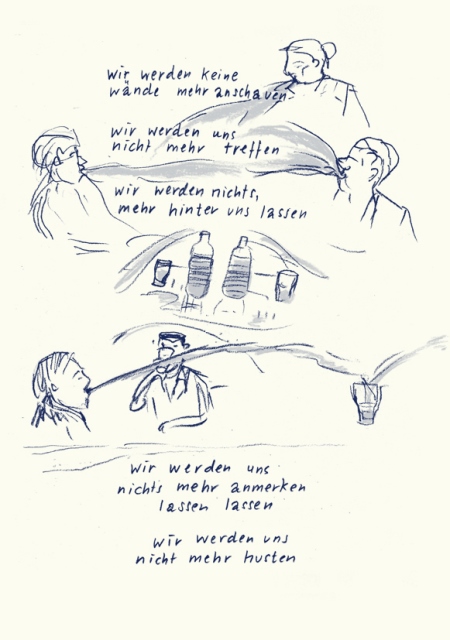 wir werden keine
wände mehr anschauen
wir werden uns
nicht mehr treffen
wir werden nichts,
mehr hinter uns lassen
wir werden uns
nichts mehr anmerken
lassen lassen
wir werden uns
nicht mehr husten